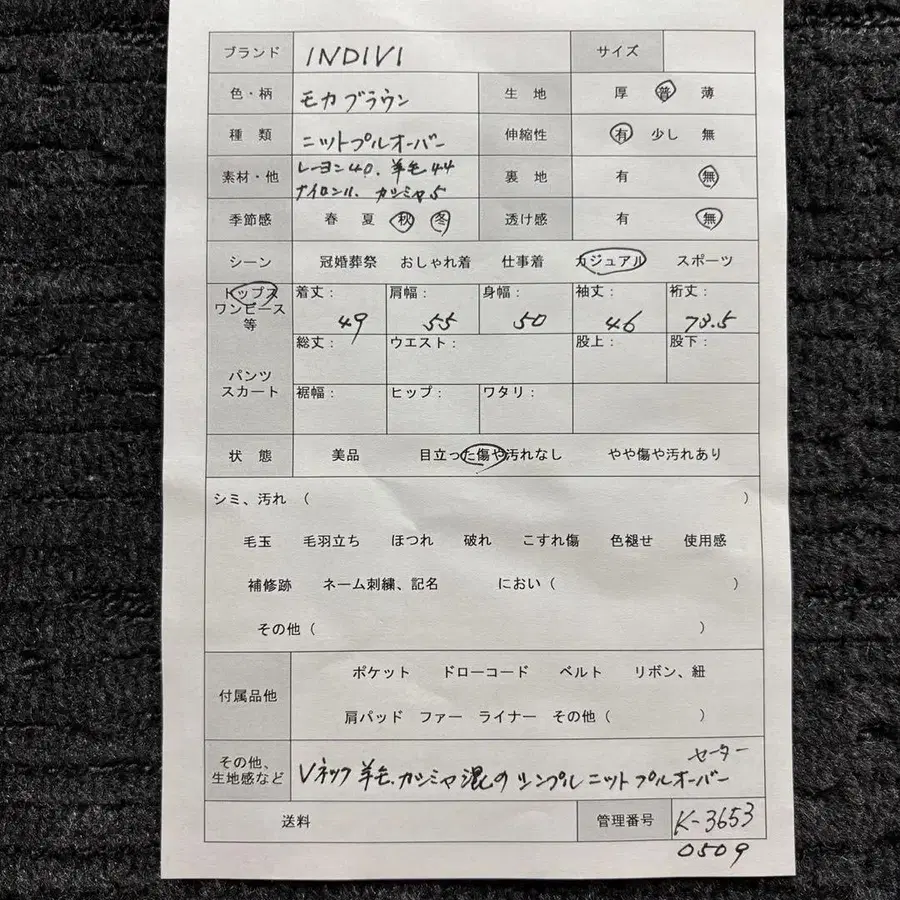 ブランド INDIVI サイズ
色・柄 モカブラウン 生地 厚 普 薄
種類 ニットプルオーバー 伸縮性 有 少し 無
素材・他 レーヨン40、羊毛44 裏地 有 無
ナイロン11、カシミヤ5
季節感 春 夏 秋 冬 透け感 有 無
シーン 冠婚葬祭 おしゃれ着 仕事着 カジュアル スポーツ
トップス 着丈： 肩幅： 身幅： 袖丈： 裄丈：
ワンピース
等 49 55 50 46 73.5
総丈： ウエスト： 股上： 股下：
パンツ
スカート 裾幅： ヒップ： ワタリ：
状態 美品 目立った傷や汚れなし やや傷や汚れあり
シミ、汚れ （ ）
毛玉 毛羽立ち ほつれ 破れ こすれ傷 色褪せ 使用感
補修跡 ネーム刺繍、記名 におい（ ）
その他（ ）
ポケット ドローコード ベルト リボン、紐
付属品他
肩パッド ファー ライナー その他（ ）
セーター
その他、
生地感など Vネック 羊毛、カシミヤ混の シンプル ニット プルオーバー
送料 管理番号 K-3653
0509